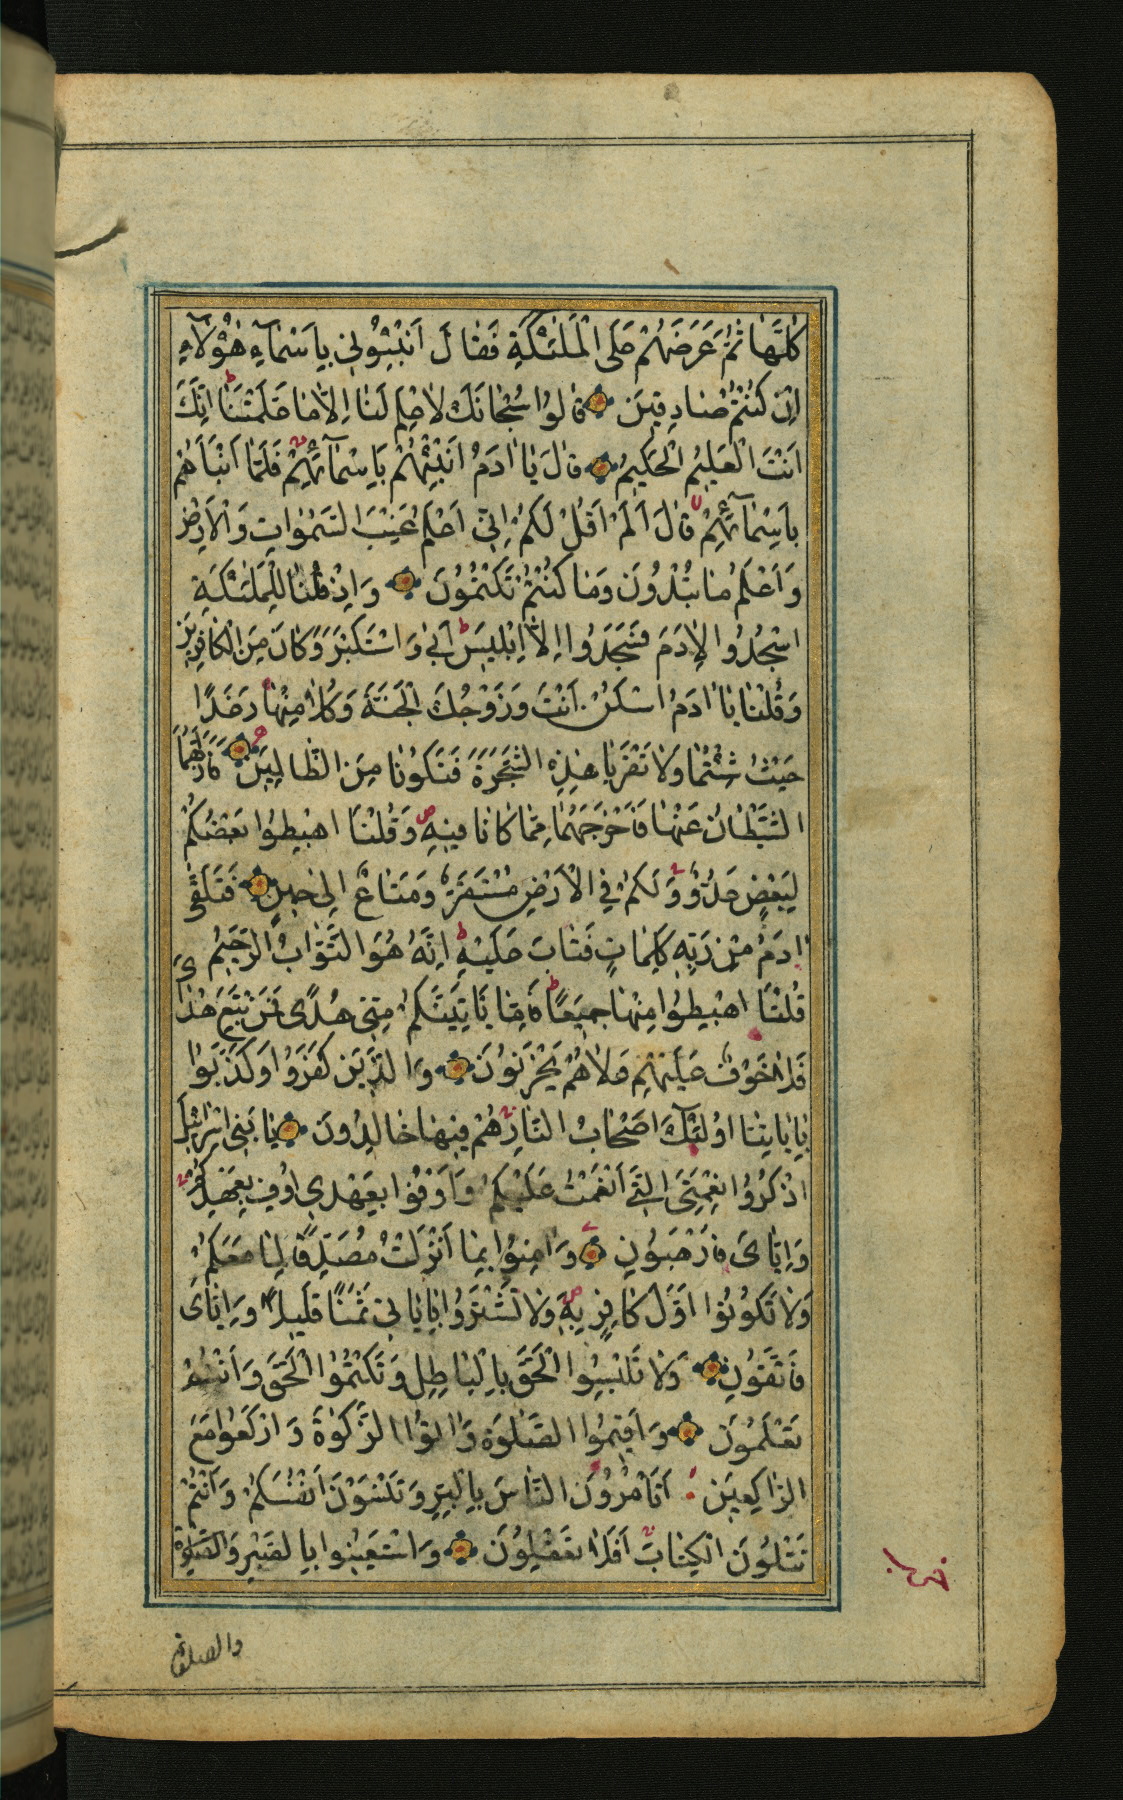 كُلَّهَا ثُمَّ عَرَضَهُمْ عَلَى الْمَلٰئِكَةِ فَقَالَ اَنْبِئُونِي بِاَسْمَآءِ هٰؤُلَآءِ
اِنْ كُنْتُمْ صَادِقِينَ قَالُوا سُبْحَانَكَ لَا عِلْمَ لَنَا اِلَّا مَا عَلَّمْتَنَا اِنَّكَ
اَنْتَ الْعَلِيمُ الْحَكِيمُ قَالَ يَا اٰدَمُ اَنْبِئْهُمْ بِاَسْمَآئِهِمْ فَلَمَّا اَنْبَاَهُمْ
بِاَسْمَآئِهِمْ قَالَ اَلَمْ اَقُلْ لَكُمْ اِنِّي اَعْلَمُ غَيْبَ السَّمٰوَاتِ وَالْاَرْضِ
وَاَعْلَمُ مَا تُبْدُونَ وَمَا كُنْتُمْ تَكْتُمُونَ وَاِذْ قُلْنَا لِلْمَلٰئِكَةِ
اسْجُدُوا لِاٰدَمَ فَسَجَدُوا اِلَّا اِبْلِيسَ اَبٰى وَاسْتَكْبَرَ وَكَانَ مِنَ الْكَافِرِينَ
وَقُلْنَا يَا اٰدَمُ اسْكُنْ اَنْتَ وَزَوْجُكَ الْجَنَّةَ وَكُلَا مِنْهَا رَغَدًا
حَيْثُ شِئْتُمَا وَلَا تَقْرَبَا هٰذِهِ الشَّجَرَةَ فَتَكُونَا مِنَ الظَّالِمِينَ فَاَزَلَّهُمَا
الشَّيْطَانُ عَنْهَا فَاَخْرَجَهُمَا مِمَّا كَانَا فِيهِ وَقُلْنَا اهْبِطُوا بَعْضُكُمْ
لِبَعْضٍ عَدُوٌّ وَلَكُمْ فِي الْاَرْضِ مُسْتَقَرٌّ وَمَتَاعٌ اِلٰى حِينٍ فَتَلَقّٰى
اٰدَمُ مِنْ رَبِّهِ كَلِمَاتٍ فَتَابَ عَلَيْهِ اِنَّهُ هُوَ التَّوَّابُ الرَّحِيمُ
قُلْنَا اهْبِطُوا مِنْهَا جَمِيعًا فَاِمَّا يَاْتِيَنَّكُمْ مِنِّي هُدًى فَمَنْ تَبِعَ هُدَايَ
فَلَا خَوْفٌ عَلَيْهِمْ وَلَا هُمْ يَحْزَنُونَ وَالَّذِينَ كَفَرُوا وَكَذَّبُوا
بِاٰيَاتِنَا اُولٰٓئِكَ اَصْحَابُ النَّارِ هُمْ فِيهَا خَالِدُونَ يَا بَنِي اِسْرَائِيلَ
اذْكُرُوا نِعْمَتِيَ الَّتِي اَنْعَمْتُ عَلَيْكُمْ وَاَوْفُوا بِعَهْدِي اُوفِ بِعَهْدِكُمْ
وَاِيَّايَ فَارْهَبُونِ وَاٰمِنُوا بِمَا اَنْزَلْتُ مُصَدِّقًا لِمَا مَعَكُمْ
وَلَا تَكُونُوا اَوَّلَ كَافِرٍ بِهِ وَلَا تَشْتَرُوا بِاٰيَاتِي ثَمَنًا قَلِيلًا وَاِيَّايَ
فَاتَّقُونِ وَلَا تَلْبِسُوا الْحَقَّ بِالْبَاطِلِ وَتَكْتُمُوا الْحَقَّ وَاَنْتُمْ
تَعْلَمُونَ وَاَقِيمُوا الصَّلٰوةَ وَاٰتُوا الزَّكٰوةَ وَارْكَعُوا مَعَ
الرَّاكِعِينَ اَتَاْمُرُونَ النَّاسَ بِالْبِرِّ وَتَنْسَوْنَ اَنْفُسَكُمْ وَاَنْتُمْ
تَتْلُونَ الْكِتَابَ اَفَلَا تَعْقِلُونَ وَاسْتَعِينُوا بِالصَّبْرِ وَالصَّلٰوةِ
والصلوة